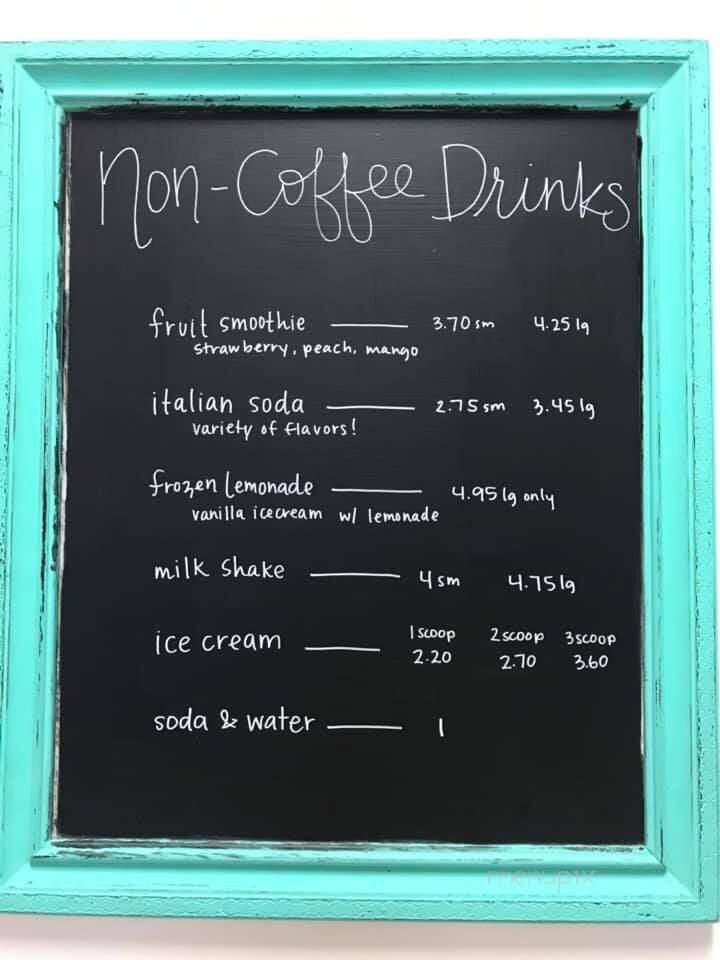 Non-Coffee Drinks
fruit smoothie 3.70 sm 4.25 lg
strawberry, peach, mango
italian soda 2.75 sm 3.45 lg
variety of flavors!
frozen lemonade 4.95 lg only
vanilla icecream w/ lemonade
milk shake 4 sm 4.75 lg
ice cream 1 scoop 2 scoop 3 scoop
2.20 2.70 3.60
soda & water 1
menupix